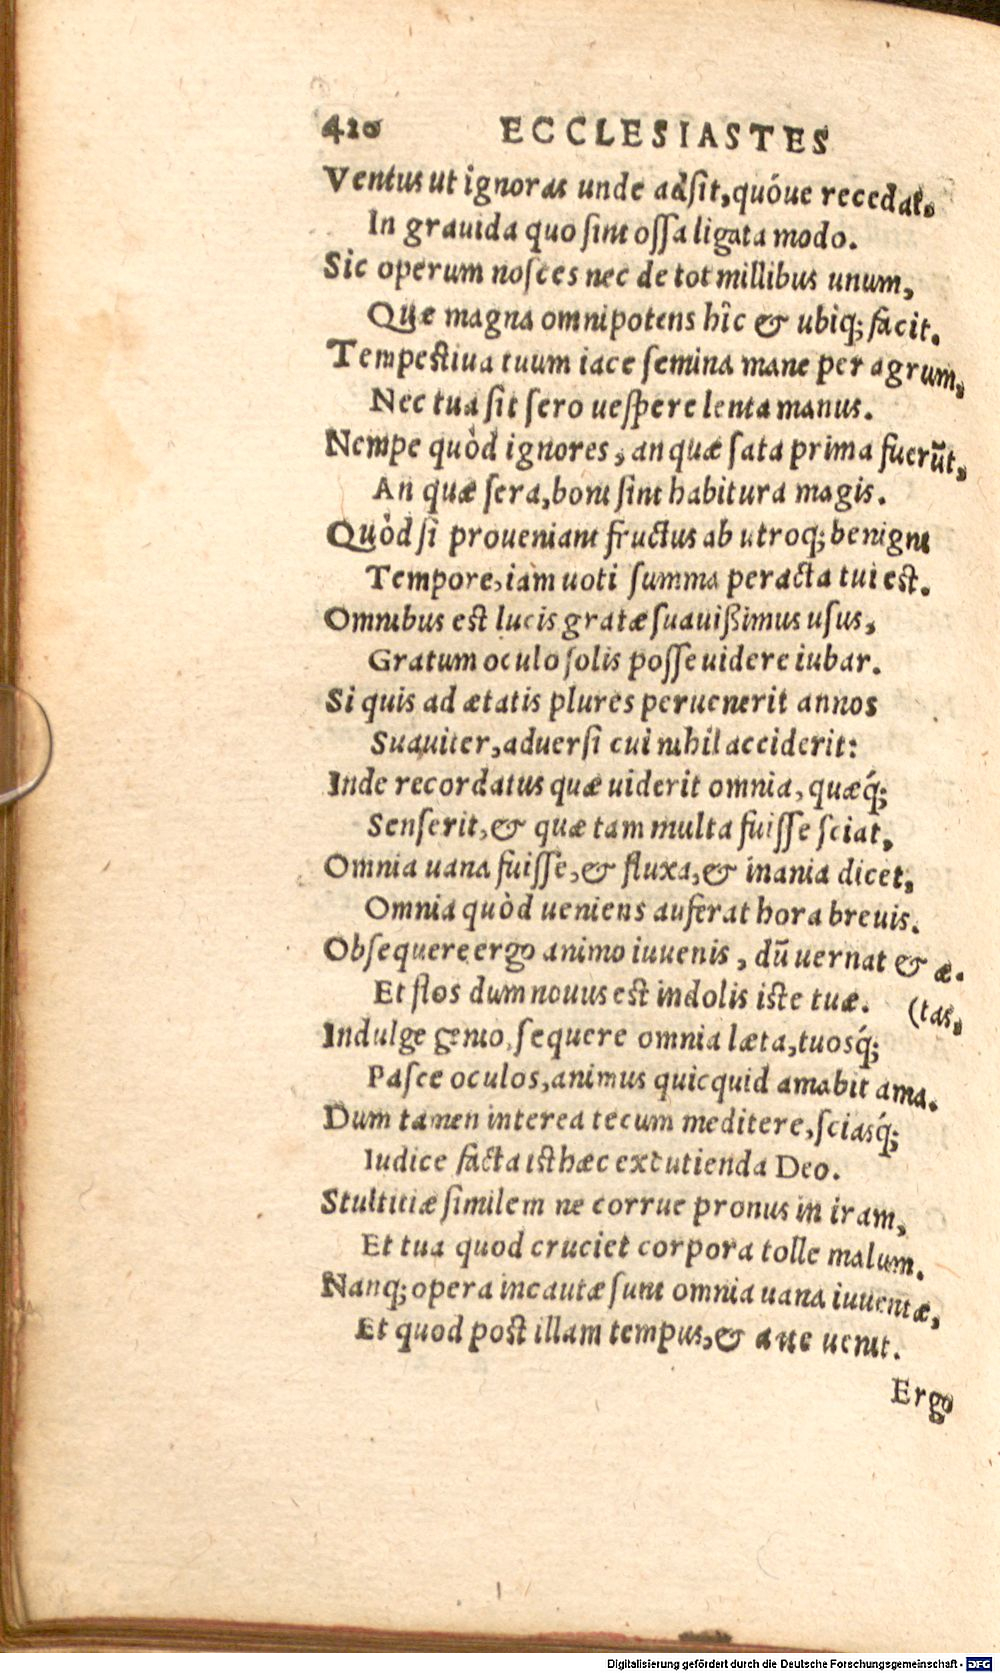 420 ECCLESIASTES
Ventus ut ignoras unde adsit, quóue recedat.
In grauida quo sint ossa ligata modo.
Sic operum nosces nec de tot millibus unum,
Quæ magna omnipotens hîc & ubiq; facit.
Tempestiua tuum iace semina mane per agrum,
Nec tua sit sero uespere lenta manus.
Nempe quòd ignores, an quæ sata prima fuerūt,
An quæ sera, boni sint habitura magis.
Quòd si proueniant fructus ab utroq; benigni
Tempore, iam uoti summa peracta tui est.
Omnibus est lucis gratæ suauißimus usus,
Gratum oculo solis posse uidere iubar.
Si quis ad ætatis plures peruenerit annos
Suauiter, aduersi cui nihil acciderit:
Inde recordatus quæ uiderit omnia, quæq́;
Senserit, & quæ tam multa fuisse sciat,
Omnia uana fuisse, & fluxa, & inania dicet,
Omnia quòd ueniens auferat hora breuis.
Obsequere ergo animo iuuenis, dū uernat & æ-
Et flos dum nouus est indolis iste tuæ. (tas,
Indulge genio, sequere omnia læta, tuosq́;
Pasce oculos, animus quicquid amabit ama.
Dum tamen interea tecum meditere, sciasq́;
Iudice facta isthæc excutienda Deo.
Stultitiæ similem ne corrue pronus in iram,
Et tua quod cruciet corpora tolle malum.
Nanq; opera incautæ sunt omnia uana iuuentæ,
Et quod post illam tempus, & ante uenit.
Ergo
Digitalisierung gefördert durch die Deutsche Forschungsgemeinschaft - DFG